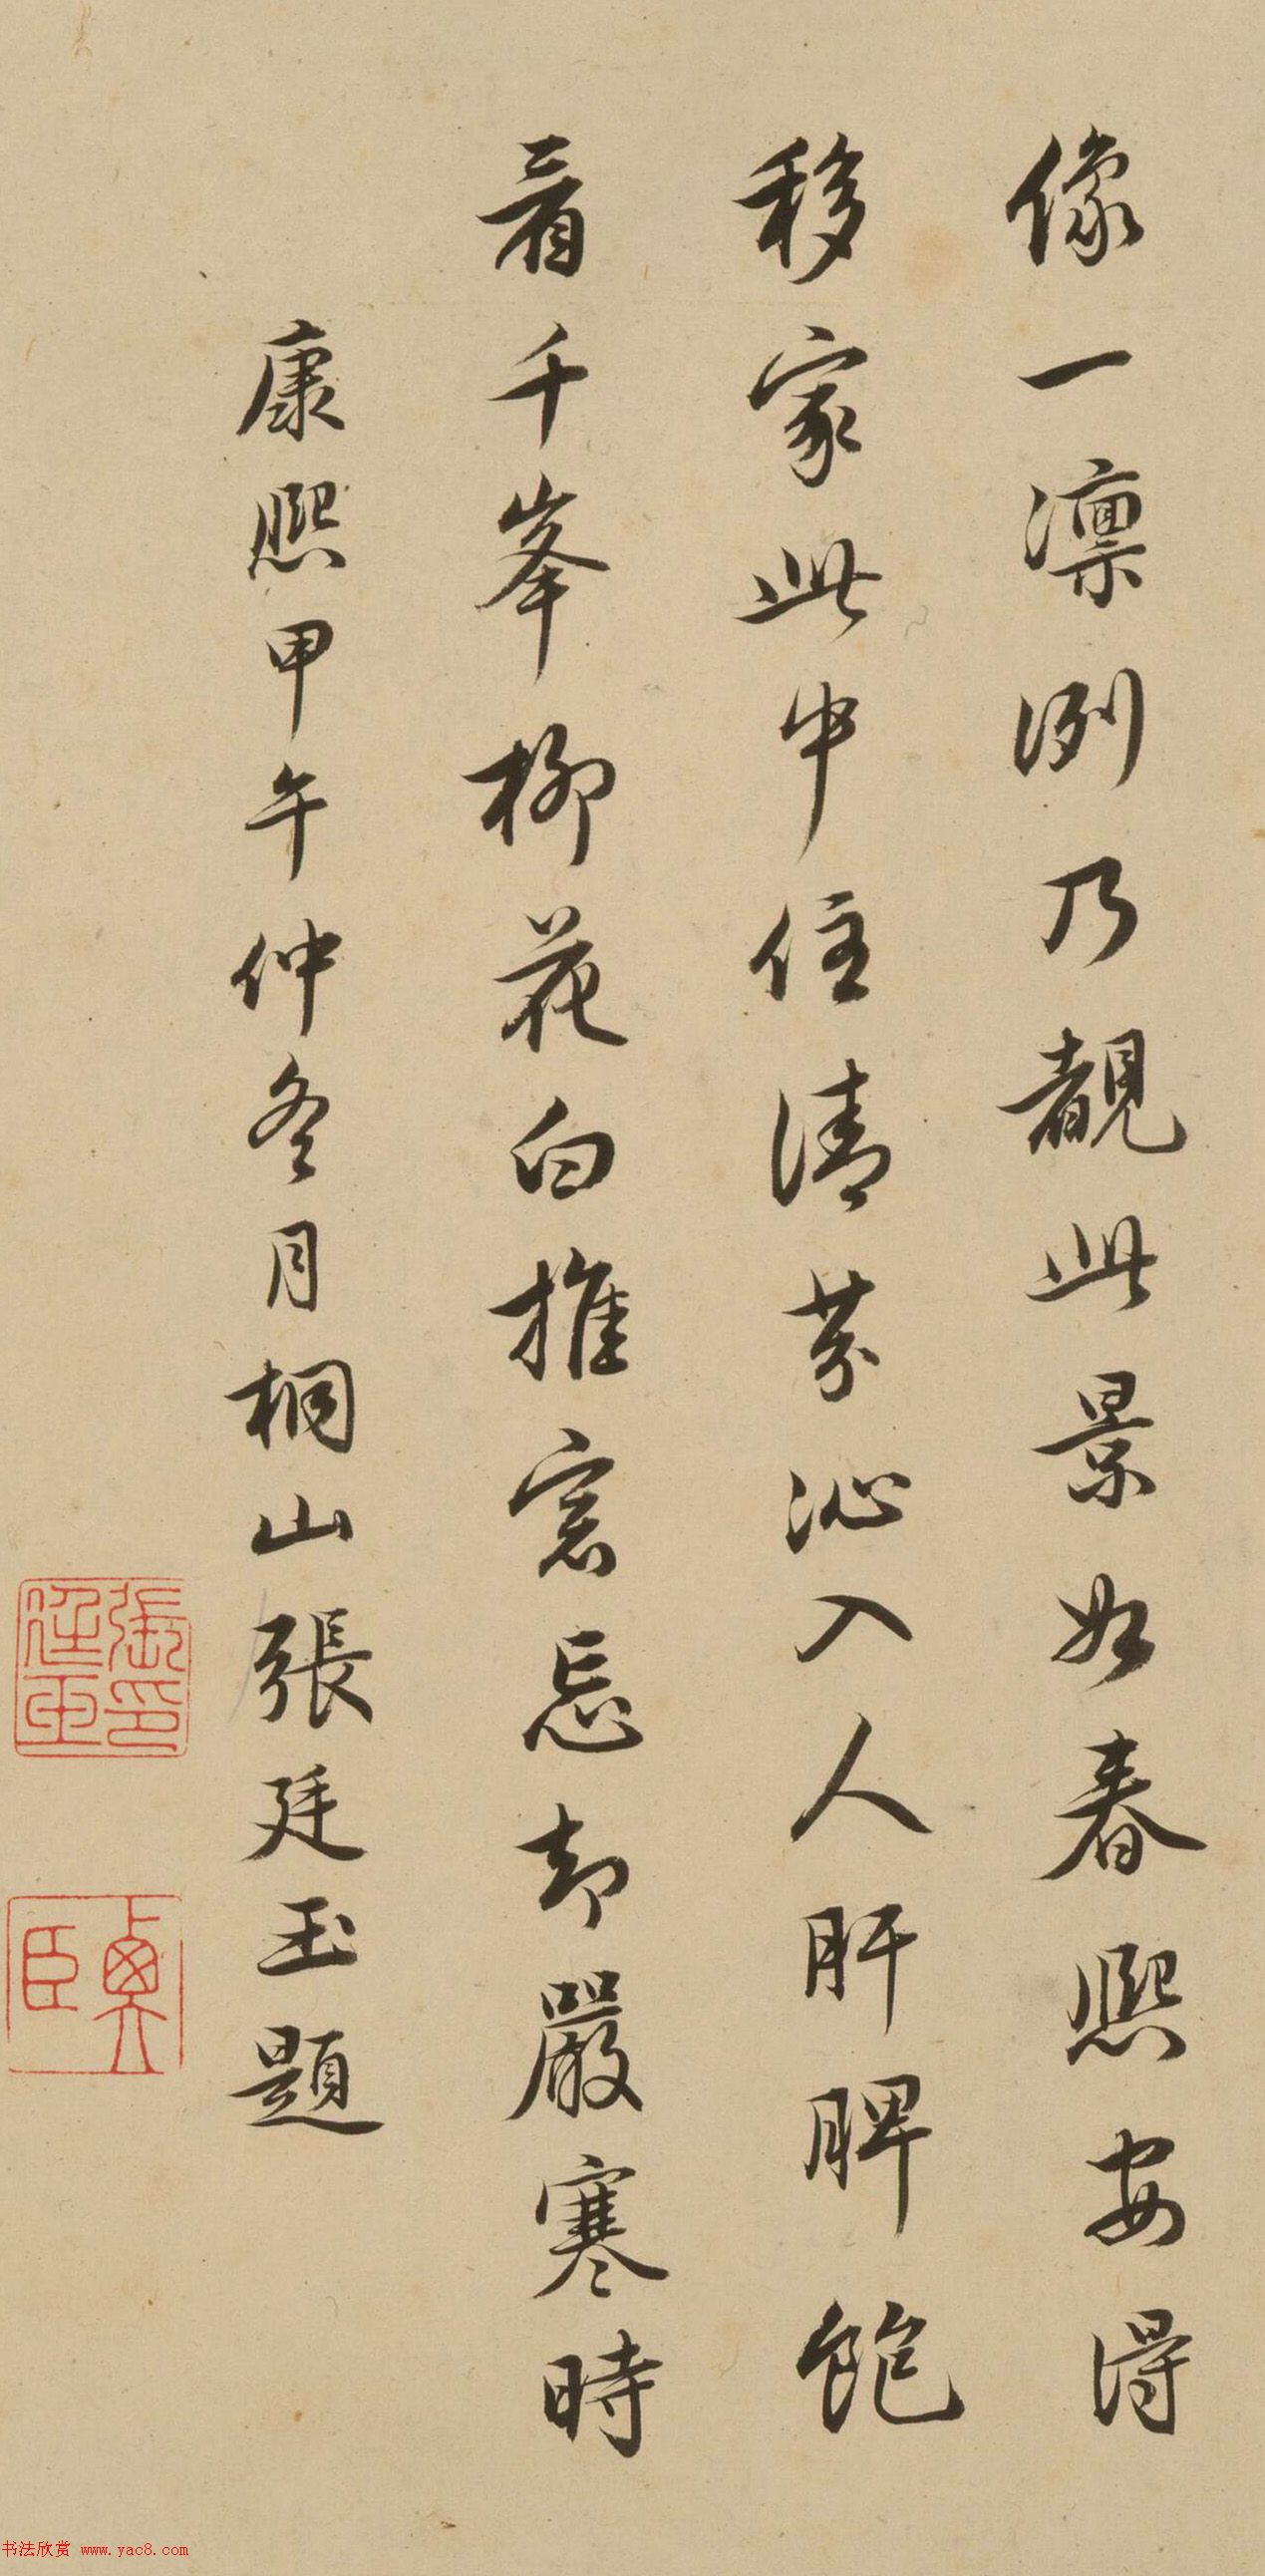 像一凛冽乃覩此景如春熙安得
移家此中住清芬沁入人肝脾飽
看千峯柳花白推窗忘却嚴寒時
康熙甲午仲冬月桐山張廷玉題
張廷玉印
衡臣
书法欣赏 www.yac8.com